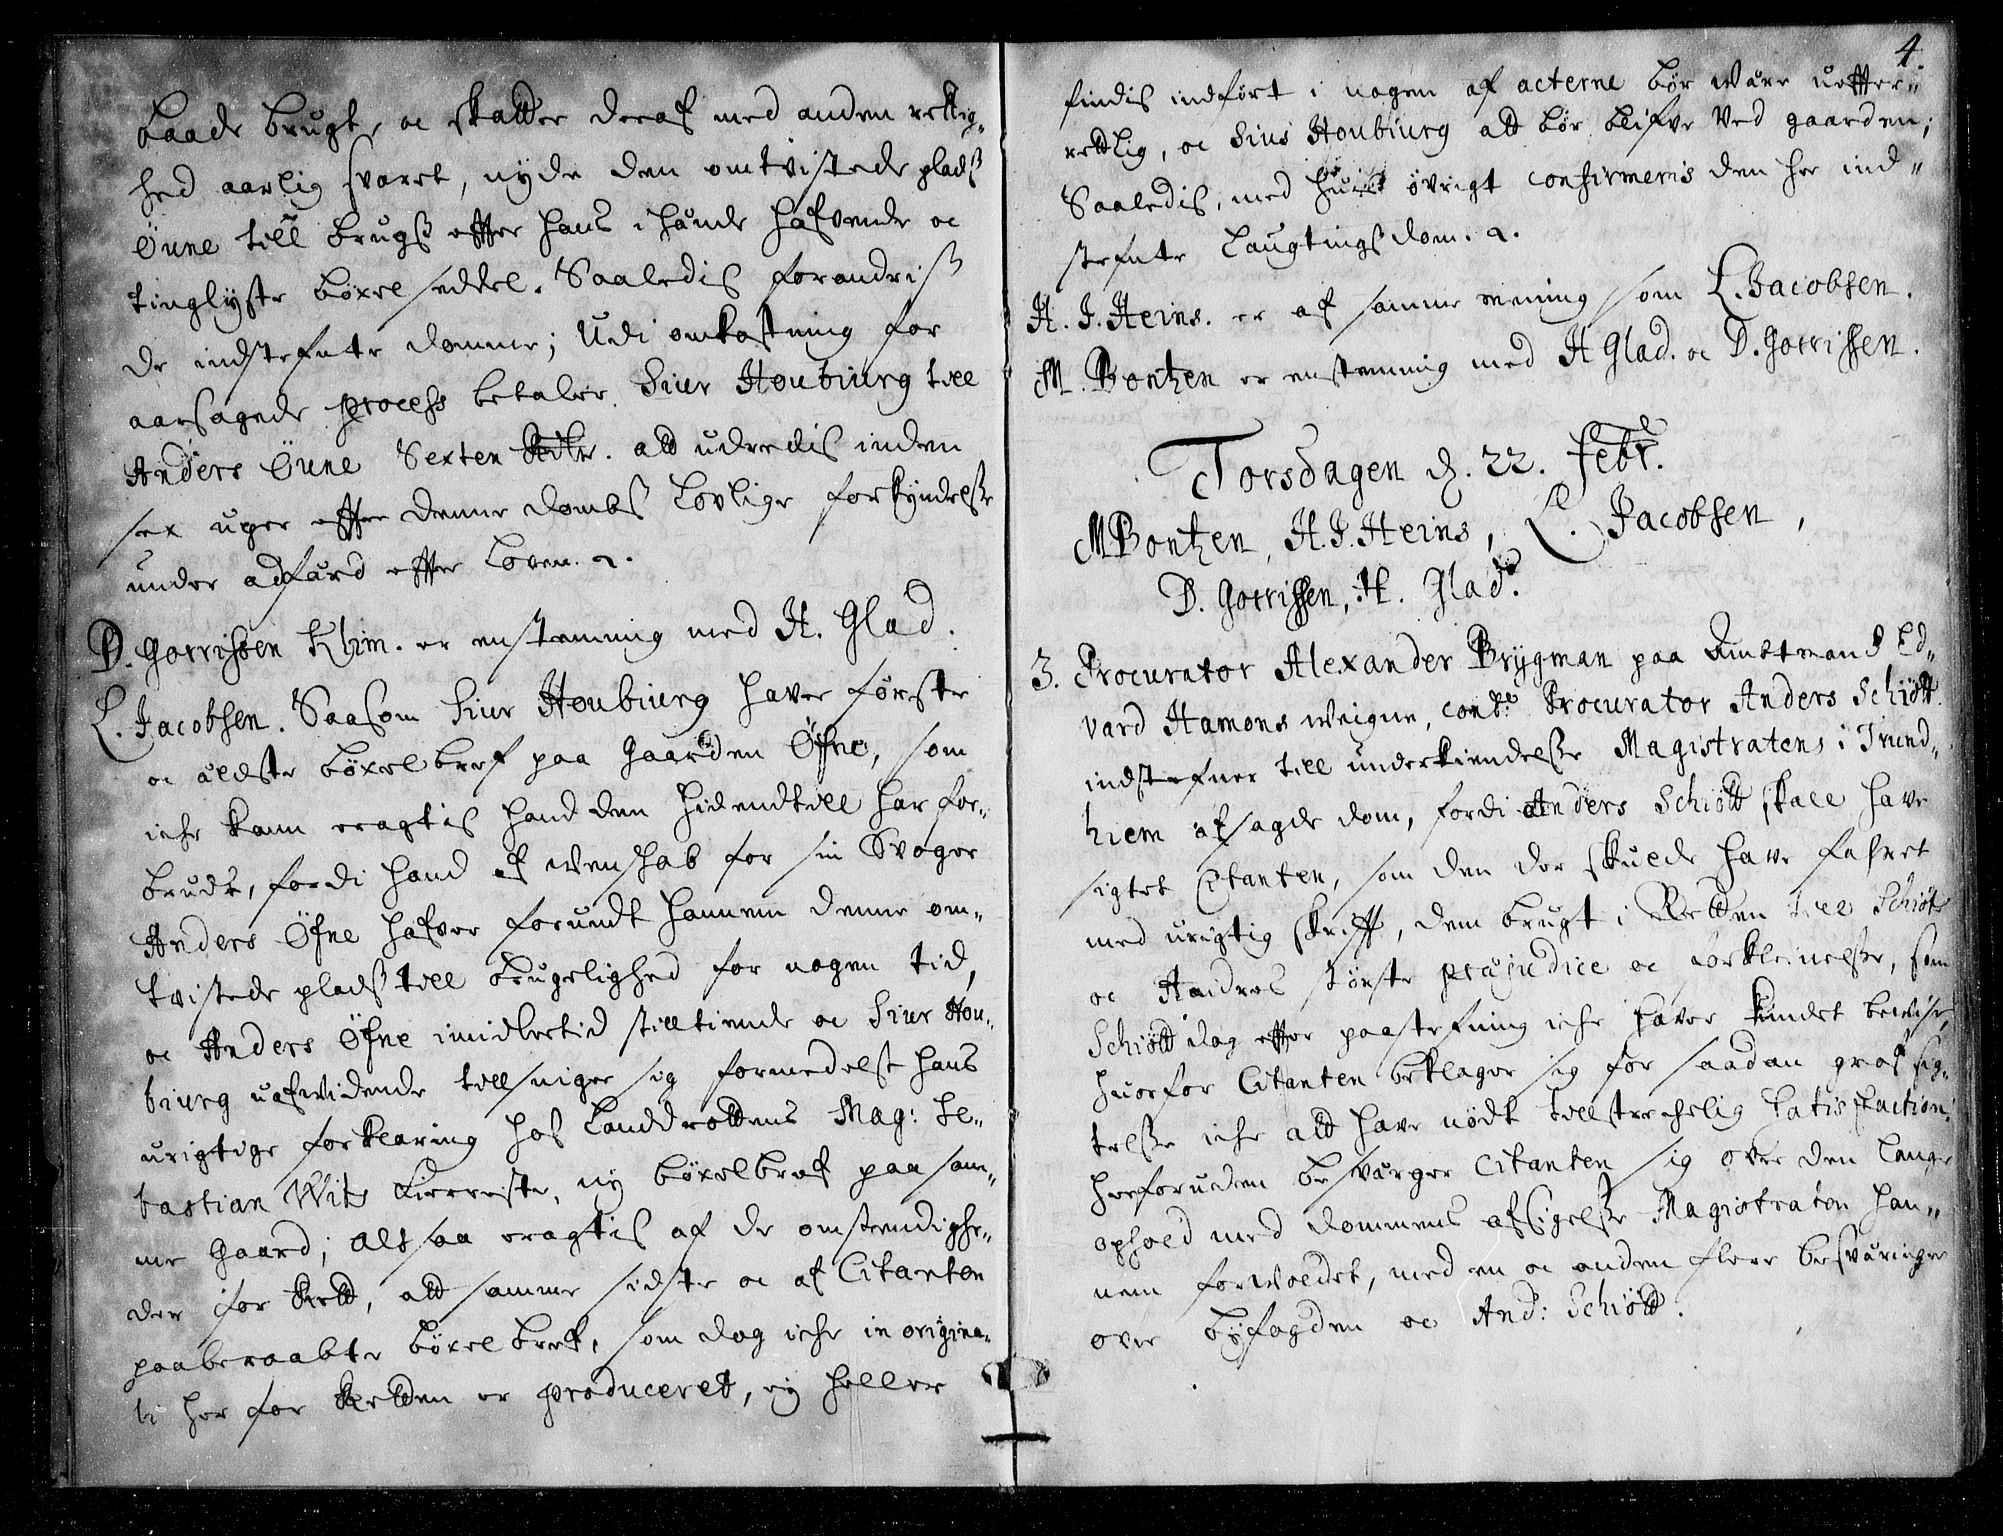 baade brugt, oc skatter deraf med anden rettig„
hed aarlig svaret, nyde den omtvistede pladß
Öune till brugß effter hans i hände hafvende oc
tinglyste böxel seddel. Saaledis forandriß
de indstefnte domme; Udi omkostning for
aarsagede process betaler Siur Houbiurg till
Anders Öune Sexten Rdlr. att udredis inden
sex uger effter denne dombß lovlige forkyndelße
under adfärd effter loven. a.
D. Gorrissen Khim. er enstemmig med H. Glad.
L. Jacobsen. Saasom Siur Houbiurg haver förste
oc äldste böxel bref paa Gaarden Öfne, som
iche kann eragtis hand den hidendtill har for„
brudt, fordi hand af wenskab for sin Svoger
Anders Öfne hafver forundt hannem denne om„
tvistede pladß till brugelighed for nogen tid,
oc Anders Öfne imidlertid stilltiende oc Siur Hou„
biurg uafvidende tillsniger sig formedelst hans
urigtige forklaring hos Landdrottens Mag: Se„
bastian Wits, ny böxelbref paa sam„
me Gaard; altsaa eragtis af de omstendighe„
der for Rett, att samme sidste oc af Citanten
paaberaabte böxel bref, som dog iche in origina„
li her for Retten er produceret, ey heller
4.
findis indfört i nogen af acterne bör wäre ueffter„
rettlig, oc Sius Houbiurg att bör blifve ved gaarden;
Saaledis, med huis övrigt confirmeris den her ind„
stefnte Laugtingß dom. a.
H. J. Heins. er af samme mening som L. Jacobsen.
M. Bontzen er enstemmig med H Glad. oc D. Gorrissen.
Torsdagen d. 22. Febr.
M Bontzen, H. J. Heins, L. Jacobsen,
D. Gorrissen, H. Glad.
3. Procurator Alexander Brygman paa Amtmand Ed„
vard Hamons weigne, cont: Procurator Anders Schiött
indstefner till underkiendelße Magistratens i Trund„
hiem afsagde dom, fordi Anders Schiött skall have
sigtet Citanten, som den der skulde have fahret
med urigtig skrifft, dem brugt i Retten till Schiöts
oc Andres störste præjudice oc forkleinelße, som
Schiött dog effter paastefning iche haver kundet bevise,
huorfor Citanten beklager sig for saadan grof sig„
telße iche att have nödt tillstrechelig Satisfaction.
herforuden besvärger Citanten sig over den lange
ophold med dommens afsigelße Magistraten han„
nem forvoldet, med en oc anden flere besväringer
over byfogden oc And: Schiött.